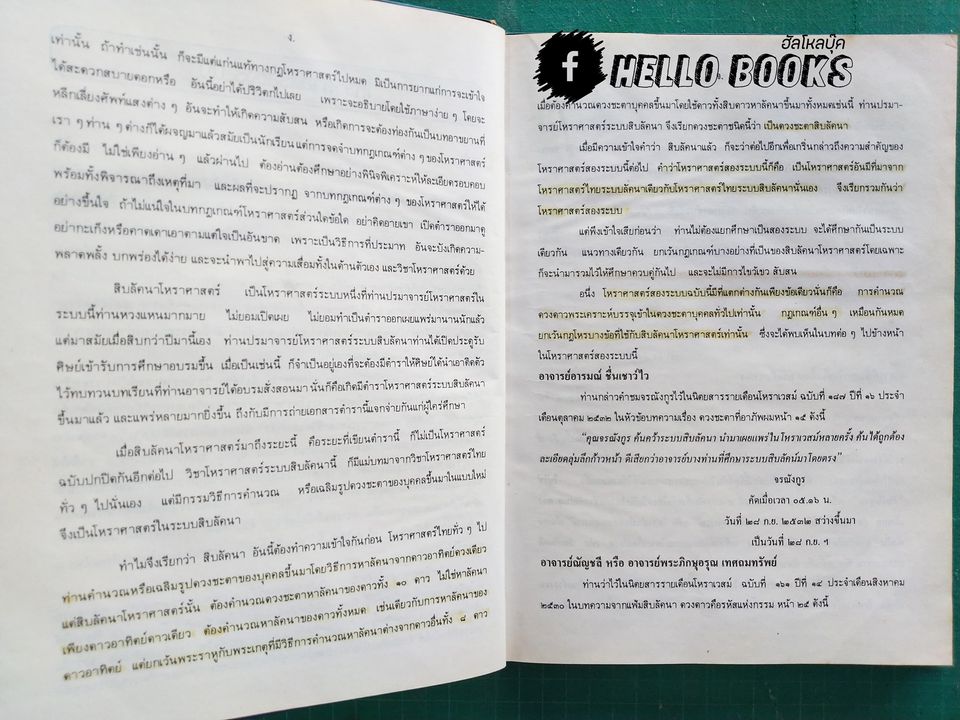 ง.
เท่านั้น ถ้าทำเช่นนั้น ก็จะมีแต่แก่นแท้ทางกฎโหราศาสตร์ไปหมด มิเป็นการยากแก่การจะเข้าใจ
ได้สะดวกสบายดอกหรือ อันนี้อย่าได้ปริวิตกไปเลย เพราะจะอธิบายโดยใช้ภาษาง่าย ๆ โดยจะ
หลีกเลี่ยงศัพท์แสงต่าง ๆ อันจะทำให้เกิดความสับสน หรือเกิดการจะต้องท่องกันเป็นบทอาขยานที่
เรา ๆ ท่าน ๆ ต่างก็ได้ผจญมาแล้วสมัยเป็นนักเรียน แต่การจดจำบทกฎเกณฑ์ต่าง ๆ ของโหราศาสตร์
ก็ต้องมี ไม่ใช่เพียงอ่าน ๆ แล้วผ่านไป ต้องอ่านต้องศึกษาอย่างพินิจพิเคราะห์ให้ละเอียดรอบคอบ
พร้อมทั้งพิจารณาถึงเหตุที่มา และผลที่จะปรากฏ จากบทกฎเกณฑ์ต่าง ๆ ของโหราศาสตร์ให้ได้
อย่างขึ้นใจ ถ้าไม่แน่ใจในบทกฎเกณฑ์โหราศาสตร์ส่วนใดข้อใด อย่าคิดอายเขา เปิดตำราออกมาดู
อย่ากะเก็งหรือคาดเดาเอาตามแต่ใจเป็นอันขาด เพราะเป็นวิธีการที่ประมาท อันจะบังเกิดความ-
พลาดพลั้ง บกพร่องได้ง่าย และจะนำพาไปสู่ความเสื่อมทั้งในด้านตัวเอง และวิชาโหราศาสตร์ด้วย
สิบลัคนาโหราศาสตร์ เป็นโหราศาสตร์ระบบหนึ่งที่ท่านปรมาจารย์โหราศาสตร์ใน
ระบบนี้ท่านหวงแหนมากมาย ไม่ยอมเปิดเผย ไม่ยอมทำเป็นตำราออกเผยแพร่มานานนักแล้ว
แต่มาสมัยเมื่อสิบกว่าปีมานี้เอง ท่านปรมาจารย์โหราศาสตร์ระบบสิบลัคนาท่านได้เปิดประตูรับ
ศิษย์เข้ารับการศึกษาอบรมขึ้น เมื่อเป็นเช่นนี้ ก็จำเป็นอยู่เองที่จะต้องมีตำราให้ศิษย์ได้นำเอาติดตัว
ไว้ทบทวนบทเรียนที่ท่านอาจารย์ได้อบรมสั่งสอนมา นั่นก็คือเกิดมีตำราโหราศาสตร์ระบบสิบลัคนา
ขึ้นมาแล้ว และแพร่หลายมากยิ่งขึ้น ถึงกับมีการถ่ายเอกสารตำรานี้แจกจ่ายกันแก่ผู้ใคร่ศึกษา
เมื่อสิบลัคนาโหราศาสตร์มาถึงระยะนี้ คือระยะที่เขียนตำรานี้ ก็ไม่เป็นโหราศาสตร์
ฉบับปกปิดกันอีกต่อไป วิชาโหราศาสตร์ระบบสิบลัคนานี้ ก็มีแม่บทมาจากวิชาโหราศาสตร์ไทย
ทั่ว ๆ ไปนั่นเอง แต่มีกรรมวิธีการคำนวณ หรือเฉลิมรูปดวงชะตาของบุคคลขึ้นมาในแบบใหม่
จึงเป็นโหราศาสตร์ในระบบสิบลัคนา
ทำไมจึงเรียกว่า สิบลัคนา อันนี้ต้องทำความเข้าใจกันก่อน โหราศาสตร์ไทยทั่ว ๆ ไป
ท่านคำนวณหรือเฉลิมรูปดวงชะตาของบุคคลขึ้นมาโดยวิธีการหาลัคนาจากดาวอาทิตย์ดวงเดียว
แต่สิบลัคนาโหราศาสตร์นั้น ต้องคำนวณดวงชะตาหาลัคนาของดาวทั้ง ๑๐ ดาว ไม่ใช่หาลัคนา
เพียงดาวอาทิตย์ดาวเดียว ต้องคำนวณหาลัคนาของดาวทั้งหมด เช่นเดียวกับการหาลัคนาของ
ดาวอาทิตย์ แต่ยกเว้นพระราหูกับพระเกตุที่มีวิธีการคำนวณหาลัคนาต่างจากดาวอื่นทั้ง ๘ ดาว
ฮัลโหลบุ๊ค
f HELLO BOOKS
เมื่อต้องคำนวณดวงชะตาบุคคลขึ้นมาโดยใช้ดาวทั้งสิบดาวหาลัคนาขึ้นมาทั้งหมดเช่นนี้ ท่านปรมา-
จารย์โหราศาสตร์ระบบสิบลัคนา จึงเรียกดวงชะตาชนิดนี้ว่า เป็นดวงชะตาสิบลัคนา
เมื่อมีความเข้าใจคำว่า สิบลัคนาแล้ว ก็จะว่าต่อไปอีกเพื่อเกริ่นกล่าวถึงความสำคัญของ
โหราศาสตร์สองระบบนี้ต่อไป คำว่าโหราศาสตร์สองระบบนี้ก็คือ เป็นโหราศาสตร์อันมีที่มาจาก
โหราศาสตร์ไทยระบบลัคนาเดียวกับโหราศาสตร์ไทยระบบสิบลัคนานั่นเอง จึงเรียกรวมกันว่า
โหราศาสตร์สองระบบ
แต่พึงเข้าใจเสียก่อนว่า ท่านไม่ต้องแยกศึกษาเป็นสองระบบ จะได้ศึกษากันเป็นระบบ
เดียวกัน แนวทางเดียวกัน ยกเว้นกฎเกณฑ์บางอย่างที่เป็นของสิบลัคนาโหราศาสตร์โดยเฉพาะ
ก็จะนำมารวมไว้ให้ศึกษาควบคู่กันไป และจะไม่มีการไขว้เขว สับสน
อนึ่ง โหราศาสตร์สองระบบฉบับนี้มีที่แตกต่างกันเพียงข้อเดียวนั่นก็คือ การคำนวณ
ดวงดาวพระเคราะห์บรรจุเข้าในดวงชะตาบุคคลทั่วไปเท่านั้น กฎเกณฑ์อื่น ๆ เหมือนกันหมด
ยกเว้นกฎโหรบางข้อที่ใช้กับสิบลัคนาโหราศาสตร์เท่านั้น ซึ่งจะได้พบเห็นในบทต่อ ๆ ไปข้างหน้า
ในโหราศาสตร์สองระบบนี้
อาจารย์อารมณ์ ชื่นเชาว์ไว
ท่านกล่าวคำชมจรณังกูรไว้ในนิตยสารรายเดือนโหราเวสม์ ฉบับที่ ๑๘๗ ปีที่ ๑๖ ประจำ
เดือนตุลาคม ๒๕๓๒ ในหัวข้อบทความเรื่อง ดวงชะตาที่อาภัพผมหน้า ๑๕ ดังนี้
“คุณจรณังกูร ค้นคว้าระบบสิบลัคนา นำมาเผยแพร่ในโหราเวสม์หลายครั้ง ค้นได้ถูกต้อง
ละเอียดลุ่มลึกก้าวหน้า ดีเสียกว่าอาจารย์บางท่านที่ศึกษาระบบสิบลัคน์มาโดยตรง”
จรณังกูร
คัดเมื่อเวลา ๐๕.๑๖ น.
วันที่ ๒๘ ก.ย. ๒๕๓๒ สว่างขึ้นมา
เป็นวันที่ ๒๘ ก.ย. ฯ
อาจารย์ณัญชลี หรือ อาจารย์พระภิกษุอรุณ เทศถมทรัพย์
ท่านว่าไว้ในนิตยสารรายเดือนโหราเวสม์ ฉบับที่ ๑๖๑ ปีที่ ๑๔ ประจำเดือนสิงหาคม
๒๕๓๐ ในบทความจากแฟ้มสิบลัคนา ดวงดาวคือรหัสแห่งกรรม หน้า ๒๕ ดังนี้